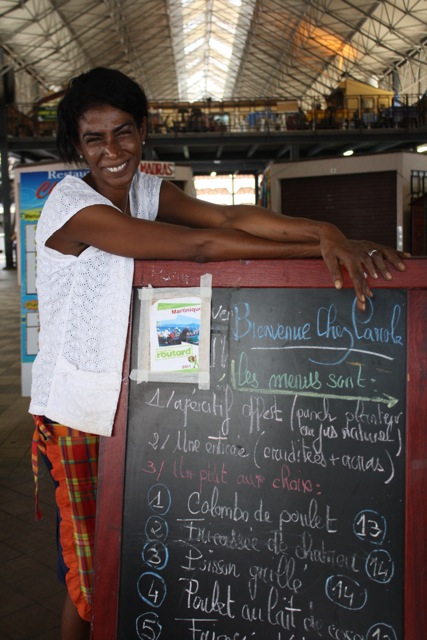 Restau
MADRAS
Martinique
routard
Bienvenue Chez Carole
Les menus sont:
1/ apéritif offert (punch planteur
ou jus naturel)
2/ Une entrée (crudités + acras)
3/ Un plat aux choix:
1 Colombo de poulet 13
2 Fricassée de chatrou
3 Poisson grillé 13
4 Poulet au lait de coco 14
5